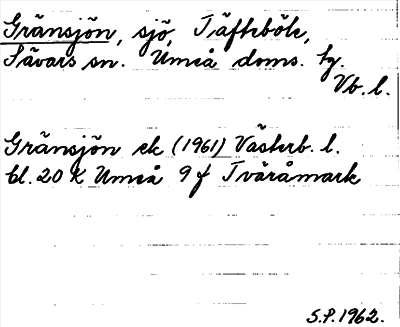 Gränsjön, sjö, Täfteböle,
Sävars sn. Umeå doms. hg.
Vb. l.
Gränsjön ek (1961) Västerb. l.
bl. 20 K Umeå 9 f Tväråmark
S.P. 1962.